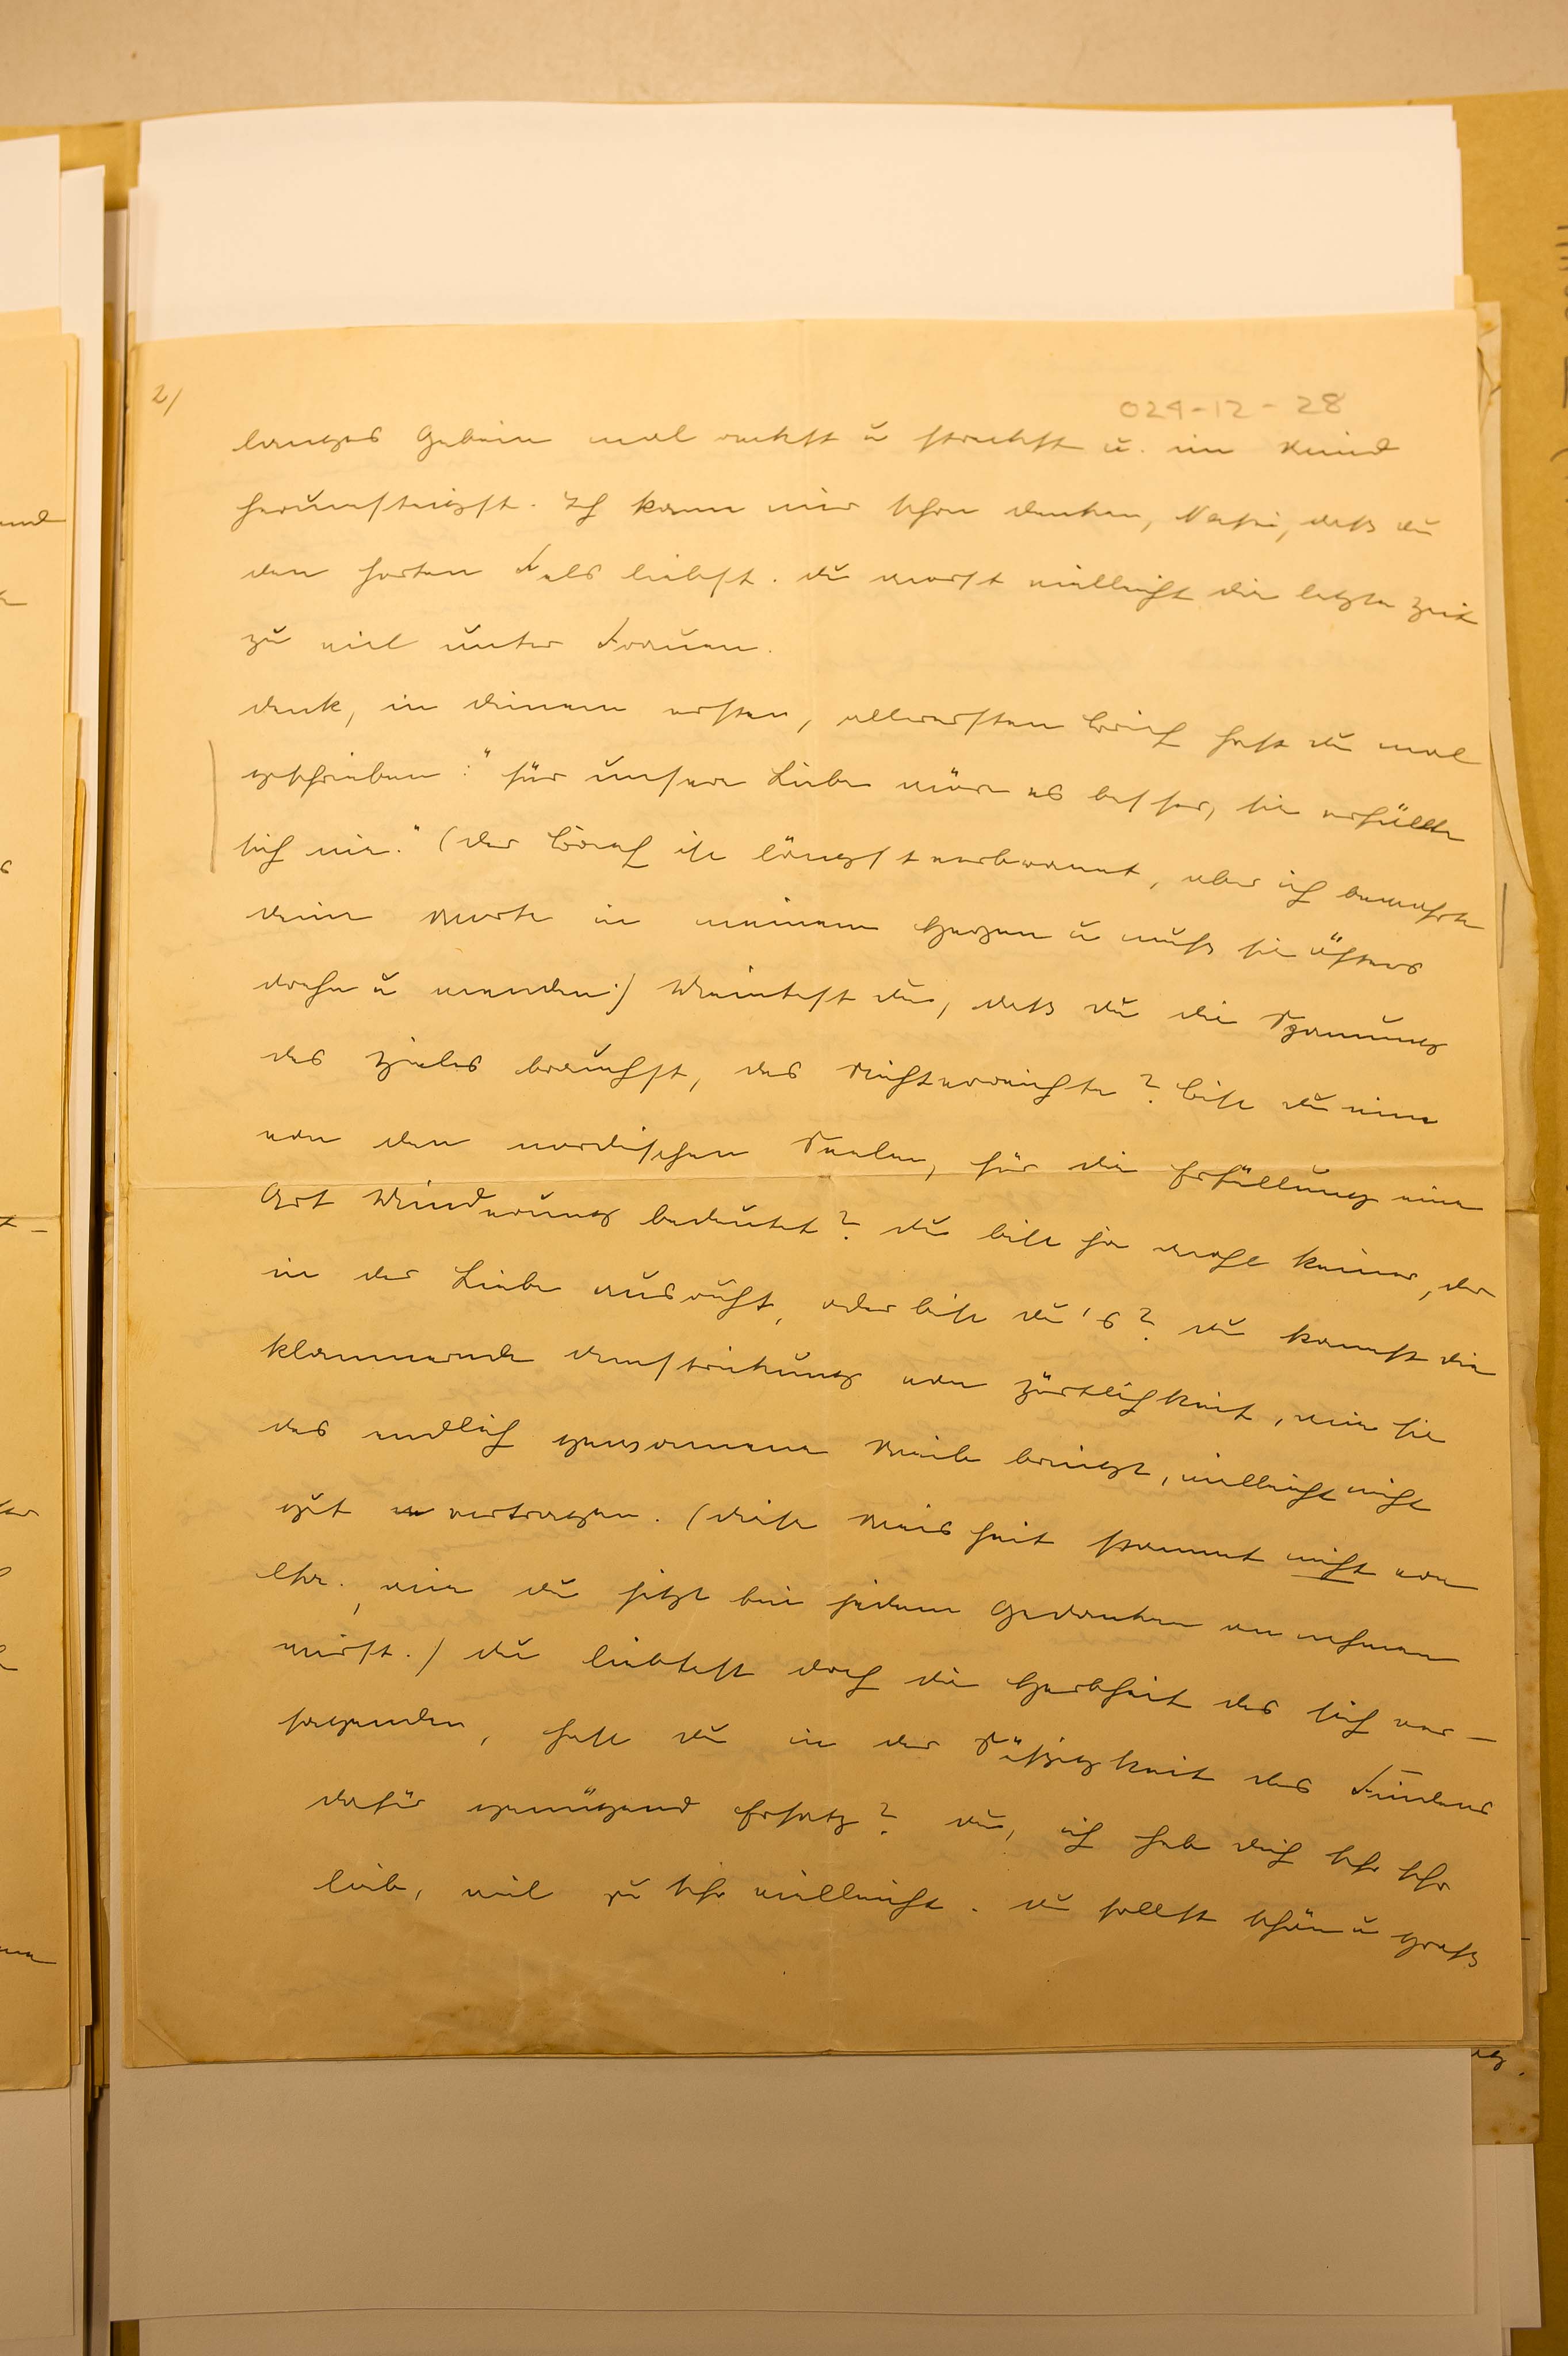 2/
024-12-28
langes Gebein mal reckst u streckst u. im Wind
herumsteigst. Ich kann mir schon denken, daß du
den harten Fels liebst. Du warst vielleicht die letzte Zeit
zu viel unter Frauen.
Denk, in deinem ersten, allerersten Brief hast du mal
geschrieben: "für unsere Liebe wäre es besser, sie erfüllte
sich nie." (der Brief ist längst verbrannt, aber ich bewahrte
deine Worte in meinem Herzen u muß sie öfters
drehn u wenden.) Meintest du, daß du die Spannung
des Zieles brauchst, das Nichterreichte? Bist du eine
von den nordischen Seelen, für die Erfüllung eine
Art Minderung bedeutet? Du bist ja wohl keiner, der
in der Liebe ausruht, oder bist du's? Du kannst die
klammernde Umstrickung von Zärtlichkeit, wie sie
das endlich gewonnene Weib bringt, vielleicht nicht
gut vertragen. (diese Weisheit stammt nicht von
Chr., wie du jetzt bei jedem Gedanken annehmen
wirst.) Du liebtest doch die Herbheit des sich ver-
sagenden, hast du in der Süßigkeit des Findens
dafür genügend Ersatz? Du, ich hab dich sehr sehr
lieb, viel zu sehr vielleicht. Du sollst schön u groß